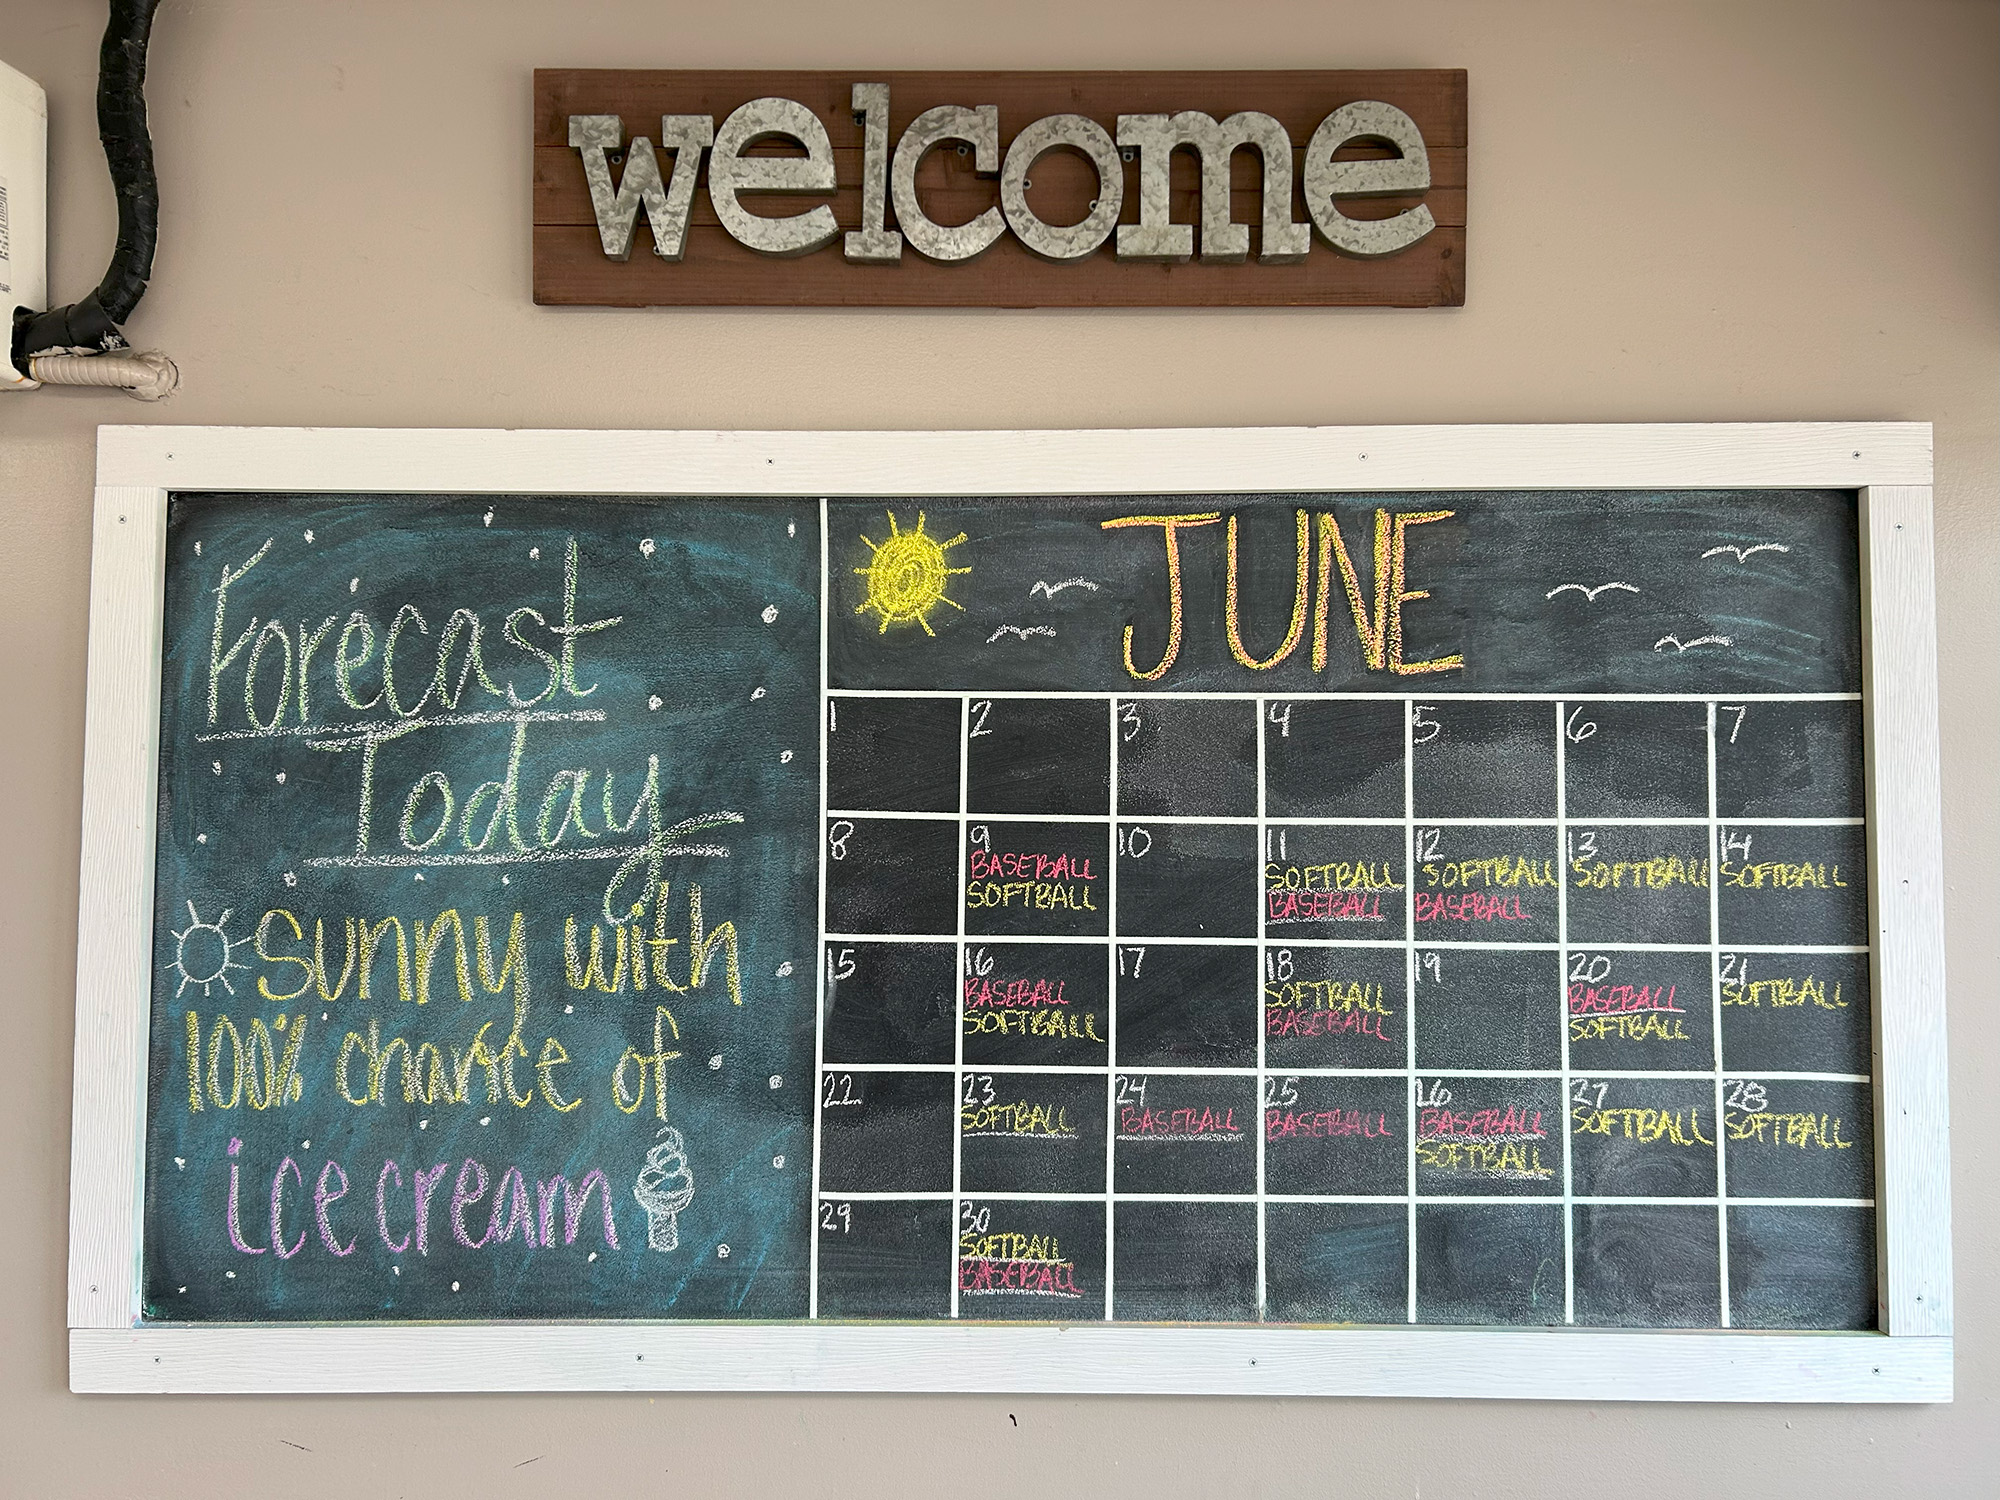 welcome
Forecast
Today
sunny with
100% chance of
ice cream
JUNE
1 2 3 4 5 6 7
8
9
BASEBALL
SOFTBALL
10
11
SOFTBALL
BASEBALL
12
SOFTBALL
BASEBALL
13
SOFTBALL
14
SOFTBALL
15
16
BASEBALL
SOFTBALL
17
18
SOFTBALL
BASEBALL
19
20
BASEBALL
SOFTBALL
21
SOFTBALL
22
23
SOFTBALL
24
BASEBALL
25
BASEBALL
26
BASEBALL
SOFTBALL
27
SOFTBALL
28
SOFTBALL
29
30
SOFTBALL
BASEBALL